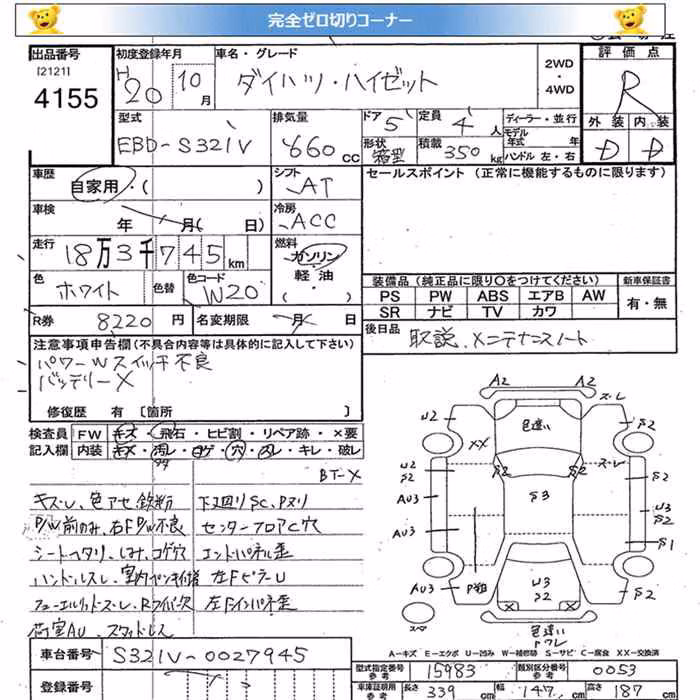 完全ゼロ切りコーナー
出品番号
[2121]
4155
初度登録年月
H20 10月
車名・グレード
ダイハツ・ハイゼット
2WD・4WD
評価点
R
型式
EBD-S321V
排気量
660cc
ドア 5
定員 4人
形状 箱型
積載 350kg
ディーラー・並行
モデル年式 年式
ハンドル 左・右
外装 内装
D D
車歴
自家用・( )
シフト
AT
セールスポイント (正常に機能するものに限ります)
車検
年 月( 日)
冷房
ACC
走行
18万3千745km
燃料
ガソリン・軽油・( )
色
ホワイト
色替
色コード
W20
装備品 (純正品に限り○をつけてください)
新車保証書
PS PW ABS エアB AW
SR ナビ TV カワ
有・無
R券 8220円
名変期限 月 日
後日品
取説、メンテナンスノート
注意事項申告欄(不具合内容等は具体的に記入して下さい)
パワーWスイッチ不良
バッテリーX
修復歴 有 [箇所 ]
検査員記入欄
FW キズ・飛石・ヒビ割・リペア跡・×要
内装 キズ・汚レ・コゲ・穴・スレ・キレ・破レ
BT-X
キズU、色アセ鉄粉
P/W前のみ、右F P/W不良
シートヘタリ、しみ、コゲ穴
ハンドルスレ、室内ペンキ付着
フューエルリッドズレ、Rワイパー欠
荷室AU
下廻りSC、Pヌリ
センターフロアC穴
エンドパネル歪
左FピラーU
左Fインパネ歪
A2 A2
U2 色違い ズレ S2
XX
S2 S2 ズレ
U2 S2 S2
AU3 S3 U3 S2
AU3 S1
AU3 P粗 U3 S2 S2
スペア 色違い
Pワレ
A-キズ E-エクボ U-凹み W-補修跡 S-サビ C-腐食 XX-交換済
車台番号
S321V-0027945
型式指定番号 参考 15983
類別区分番号 参考 0053
登録番号
車庫証明用 参考
長さ 339cm
幅 147cm
高さ 187cm